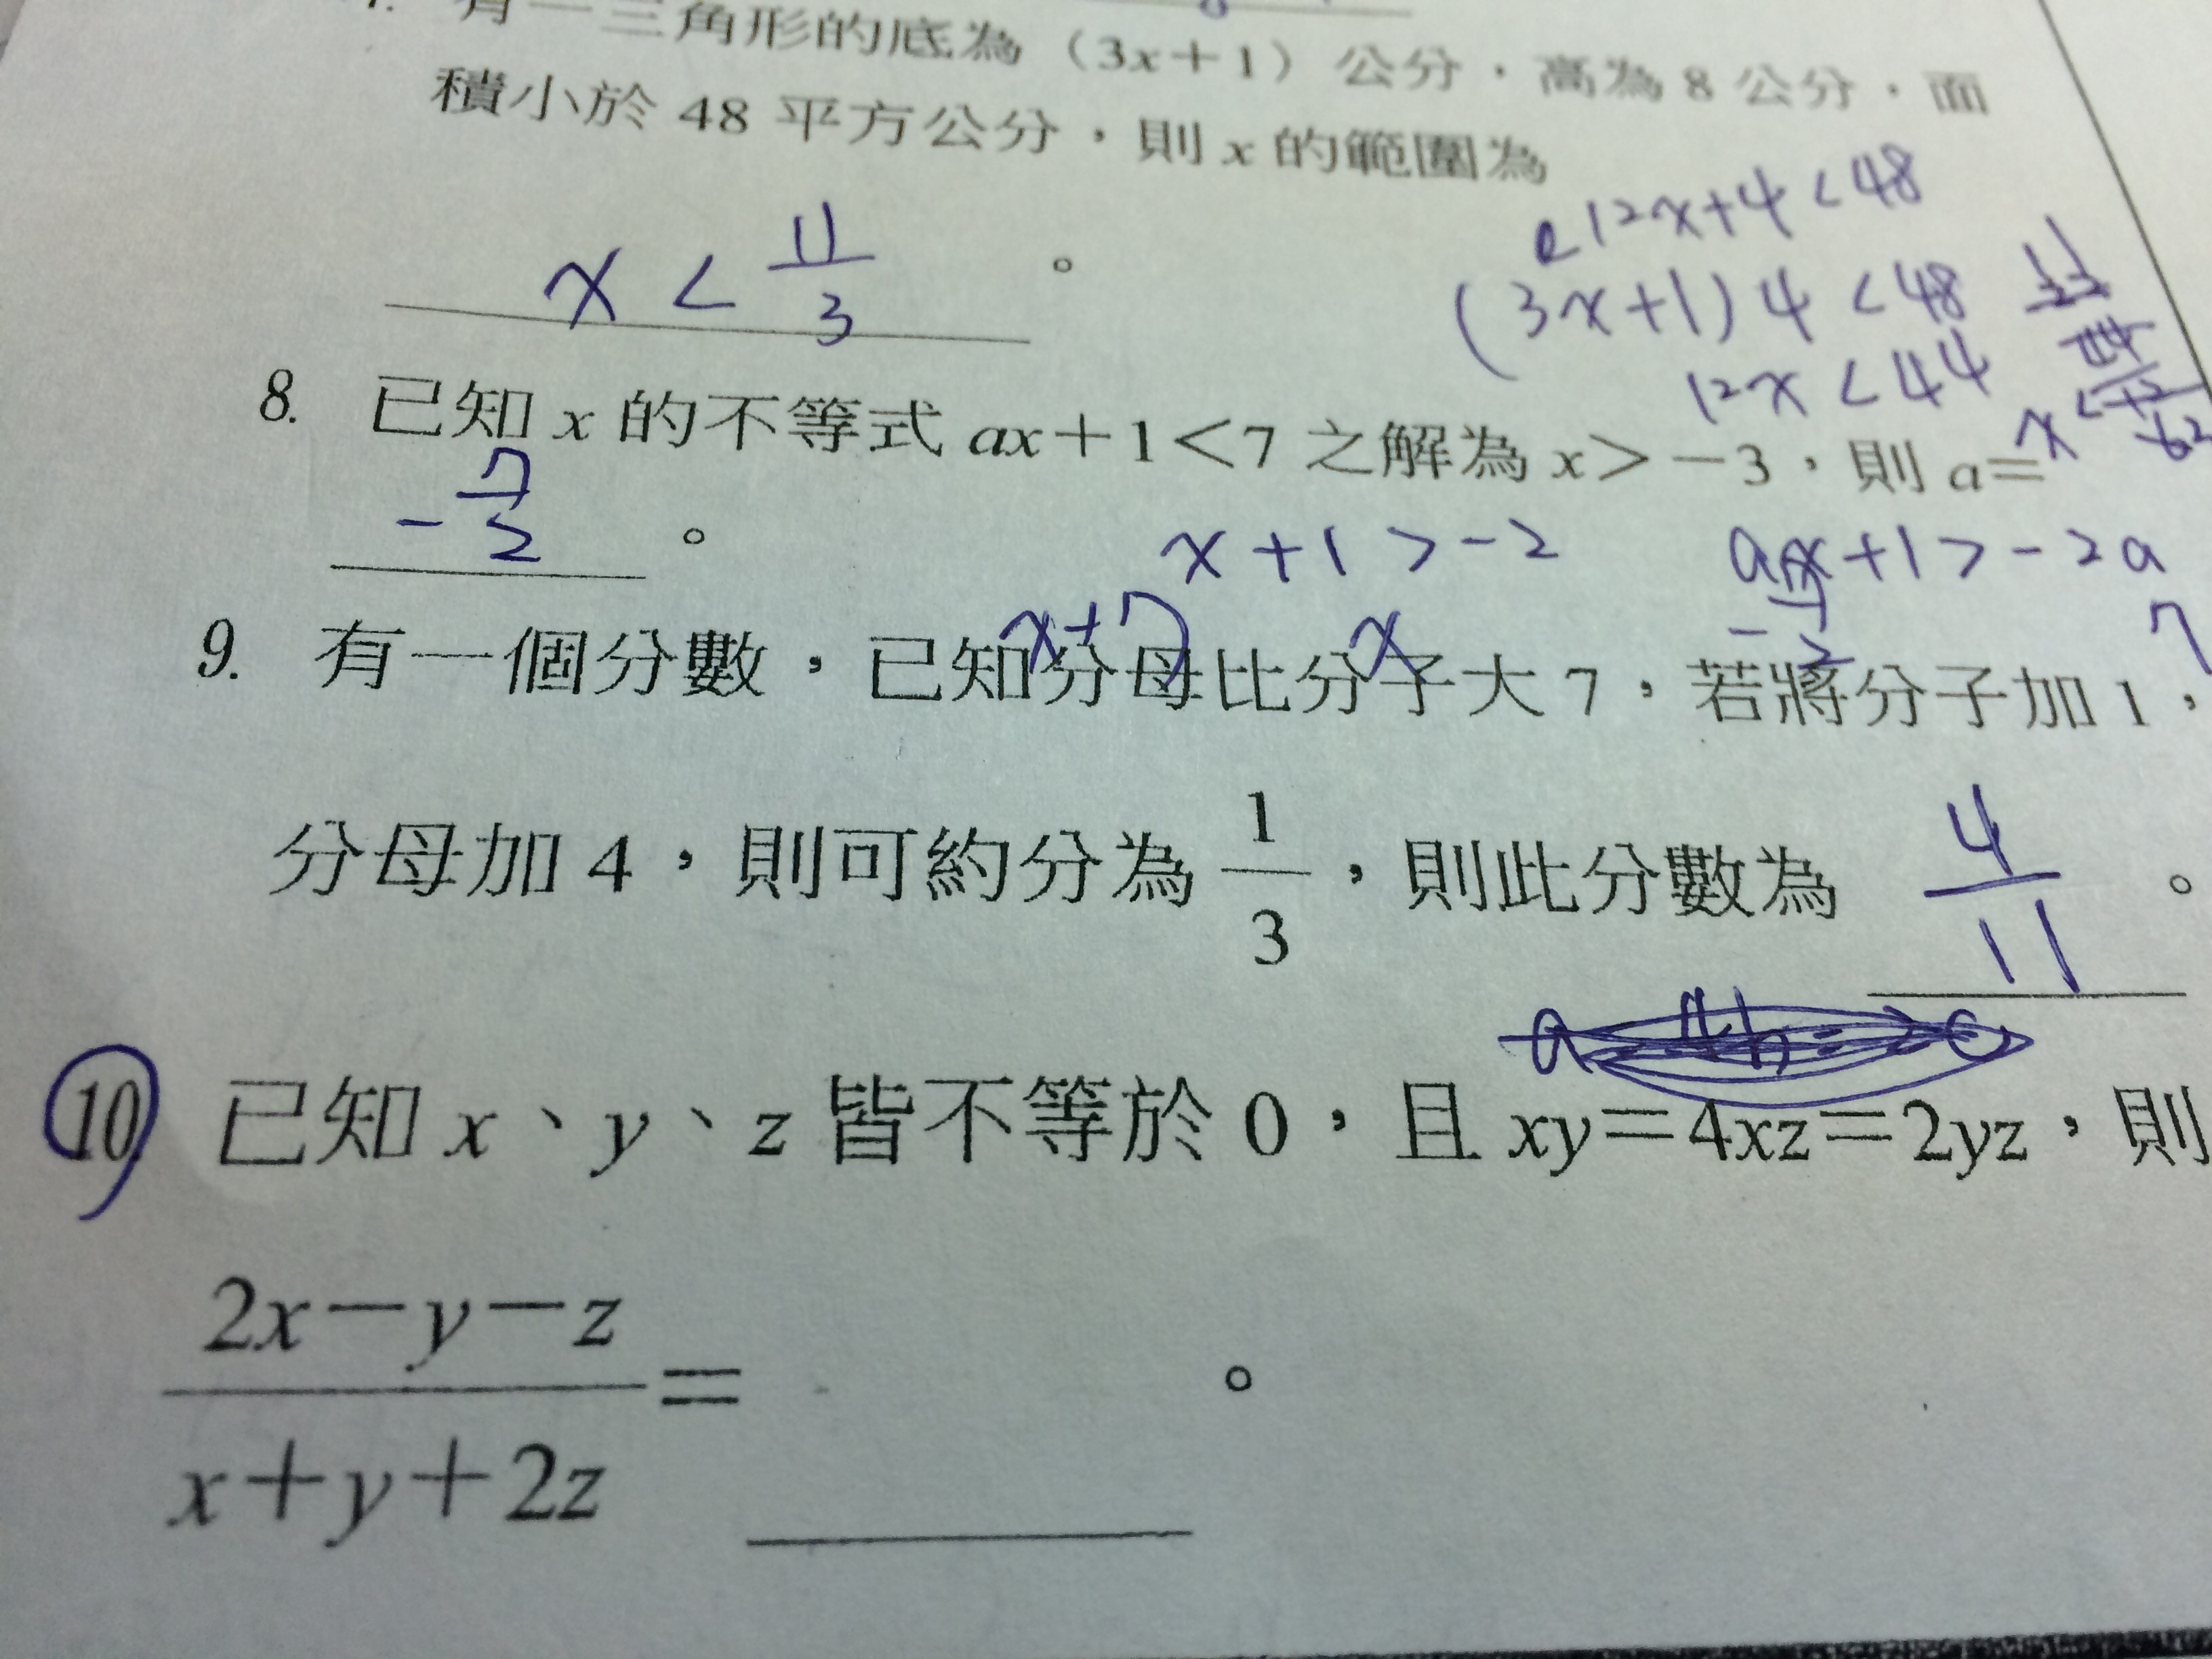 有一三角形的底為（3x＋1）公分，高為 8 公分，面
積小於 48 平方公分，則 x 的範圍為
12x+4<48
x < 11/3 。
(3x+1)4<48
12x<44
8. 已知 x 的不等式 ax＋1＜7 之解為 x＞－3，則 a＝
-7/2 。
x+1>-2 ax+1>-2a
x+7 x
9. 有一個分數，已知分母比分子大 7，若將分子加 1，
-7/2 7
分母加 4，則可約分為 1/3，則此分數為 4/11 。
10 已知 x、y、z 皆不等於 0，且 xy＝4xz＝2yz，則
2x－y－z
＝ 。
x＋y＋2z